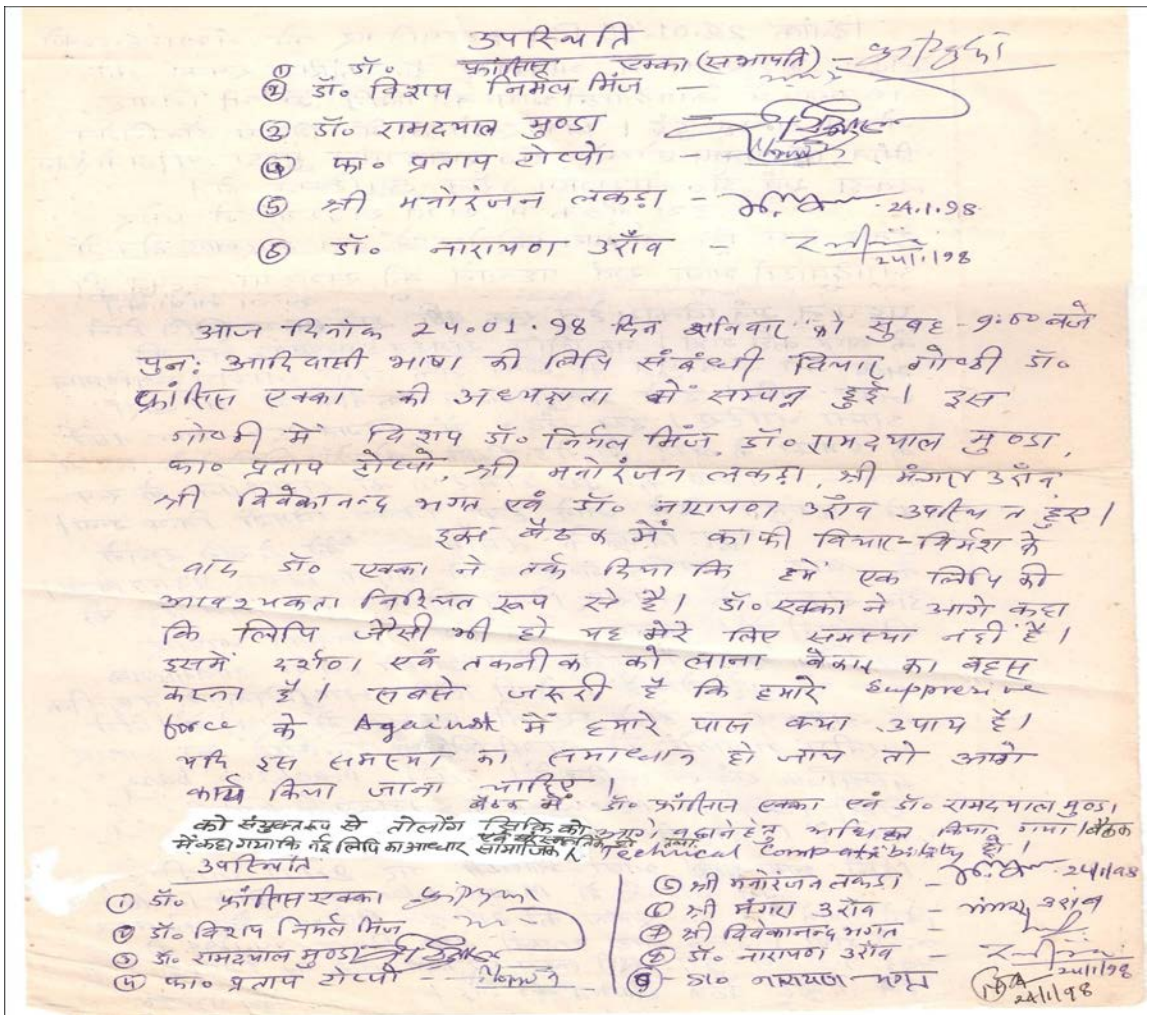 उपस्थिति
① डॉ० फ्रांसिस एक्का (सभापति) -
② डॉ० विशप निर्मल मिंज -
③ डॉ० रामदयाल मुण्डा -
④ फा० प्रताप टोप्पो -
⑤ श्री मनोरंजन लकड़ा - 24.1.98
⑥ डॉ० नारायण उराँव - 24/1/98
आज दिनांक 24.01.98 दिन शनिवार को सुबह 9:00 बजे
पुन: आदिवासी भाषा की लिपि संबंधी विचार गोष्ठी डॉ०
फ्रांसिस एक्का की अध्यक्षता में सम्पन्न हुई। इस
गोष्ठी में विशप डॉ० निर्मल मिंज, डॉ० रामदयाल मुण्डा,
फा० प्रताप टोप्पो, श्री मनोरंजन लकड़ा, श्री मंगरा उराँव,
श्री विवेकानन्द भगत एवं डॉ० नारायण उराँव उपस्थित हुए।
इस बैठक में काफी विचार-विर्मश के
वाद डॉ० एक्का ने तर्क दिया कि हमे एक लिपि की
आवश्यकता निश्चित रूप से है। डॉ० एक्का ने आगे कहा
कि लिपि जैसी भी हो यह मेरे लिए समस्या नहीं है।
इसमें दर्शन एवं तकनीक को लाना बेकार का बहस
करना है। सबसे जरूरी है कि हमारे Suppresive
force के Against में हमारे पास क्या उपाय है।
यदि इस समस्या का समाधान हो जाय तो आगे
कार्य किया जाना चाहिए।
बैठक में डॉ० फ्रांसिस एक्का एवं डॉ० रामदयाल मुण्डा
को संयुक्त रूप से तोलोंग सिकि को आगे बढ़ाने हेतु अधिकृत किया गया। बैठक
में कहा गया कि नई लिपि का आधार सामाजिक एवं सांस्कृतिक हो तथा Technical Compatibility हो।
उपस्थिति
① डॉ० फ्रांसिस एक्का
② डॉ० विशप निर्मल मिंज
③ डॉ० रामदयाल मुण्डा
④ फा० प्रताप टोप्पो
⑤ श्री मनोरंजन लकड़ा - 24/1/98
⑥ श्री मंगरा उराँव - मंगरा उरांव
⑦ श्री विवेकानन्द भगत -
⑧ डॉ० नारायण उराँव - 24/1/98
⑨ डा० नारायण भगत 24/1/98